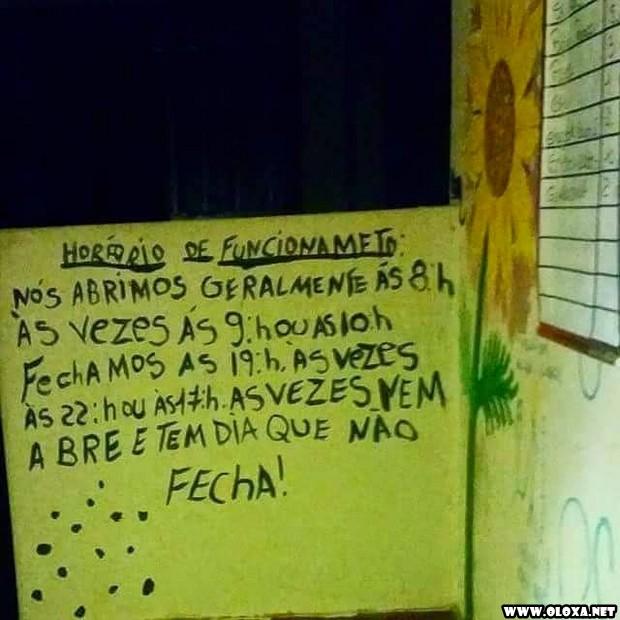 HORÁRIO DE FUNCIONAMETO:
NÓS ABRIMOS GERALMENTE ÁS 8:h
ÀS VEZES ÁS 9:h OU AS 10:h
FEChAMOS AS 19:h. ÀS VEZES
ÀS 22:h OU ÀS 17:h. AS VEZES NEM
ABRE E TEM DIA QUE NÃO
FEChA!
WWW.OLOXA.NET